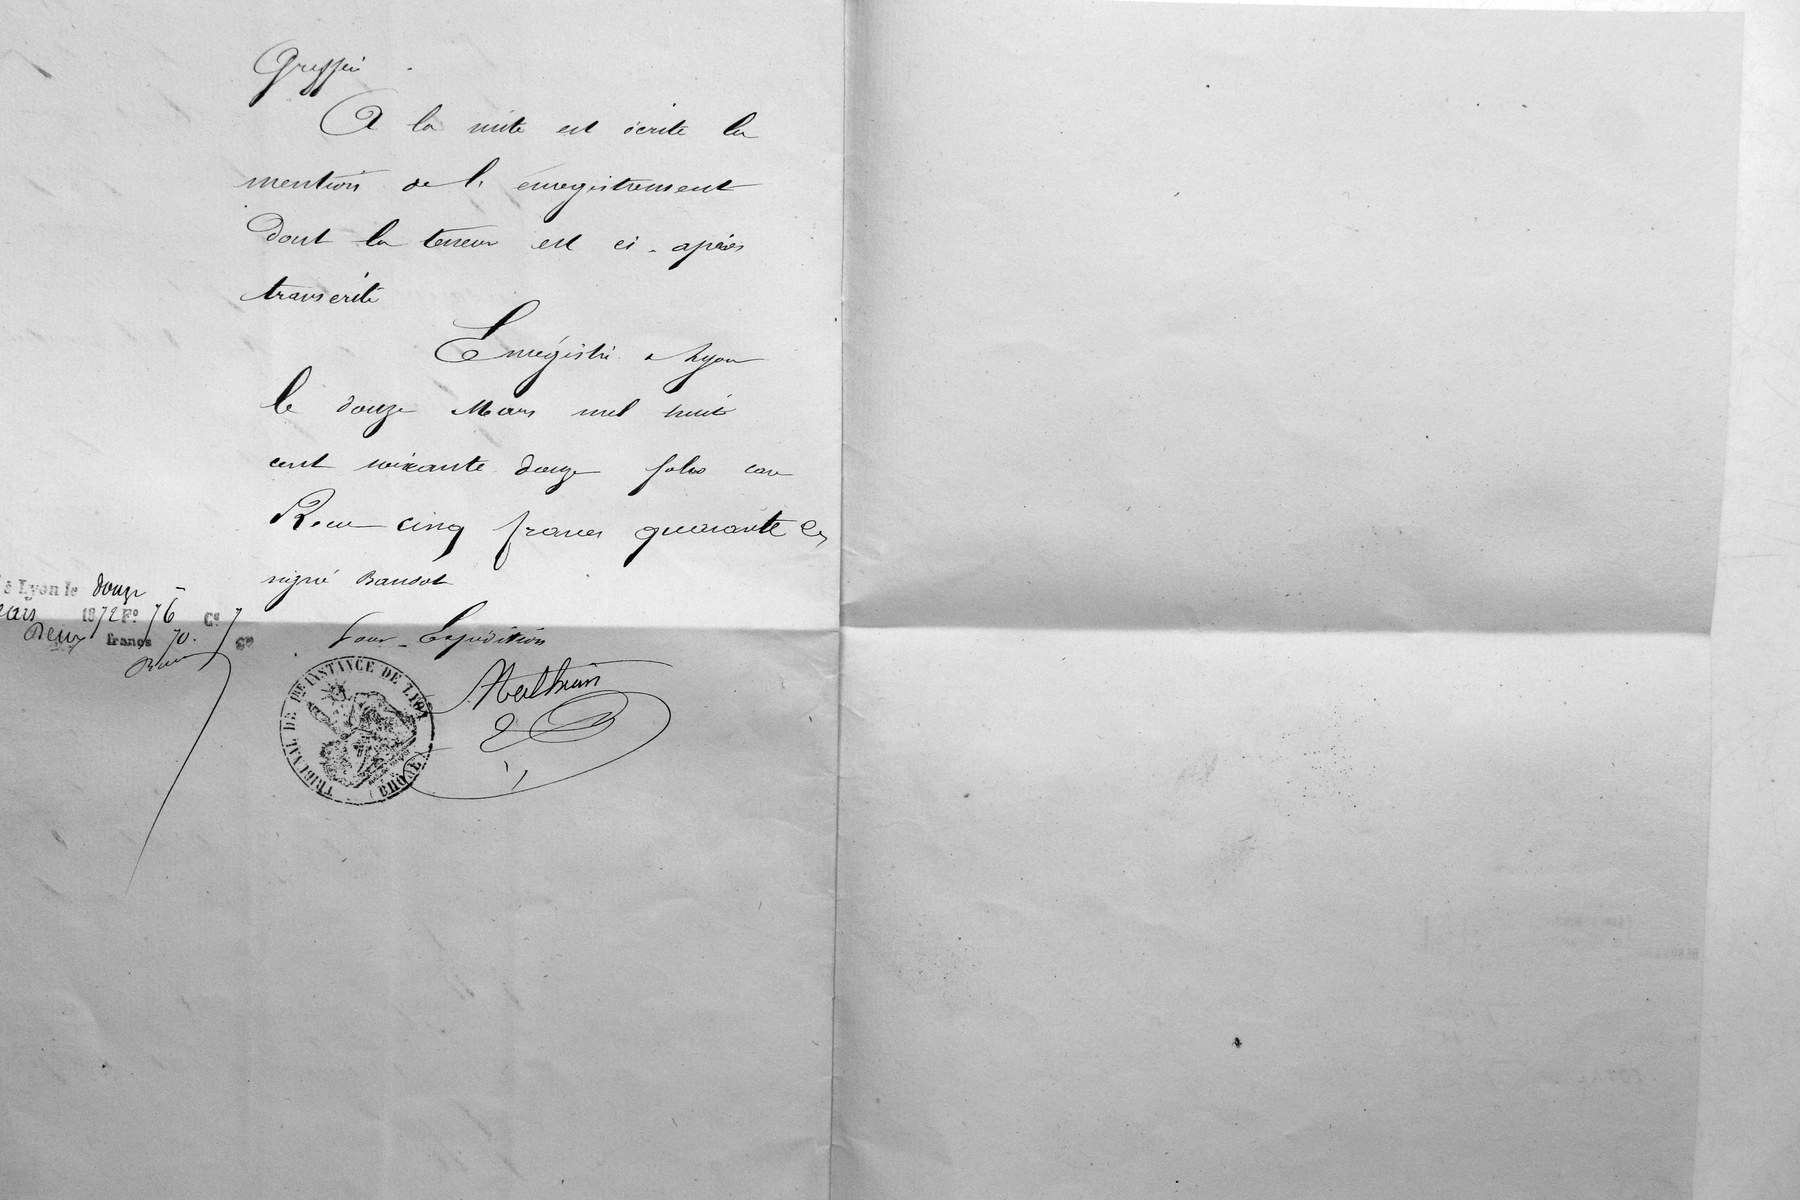 Greffier
A la suite est écrite la
mention de l'enregistrement
dont la teneur est ci-après
transcrite
Enregistré à Lyon
le douze Mars mil huit
cent soixante douze folio case
Reçu cinq francs quarante c.
signé Baudot
Pour Expédition
à Lyon le douze
Mars 1872 F° 76 C° 7
Deux francs 70. c.
TRIBUNAL DE 1RE INSTANCE DE LYON
RHÔNE